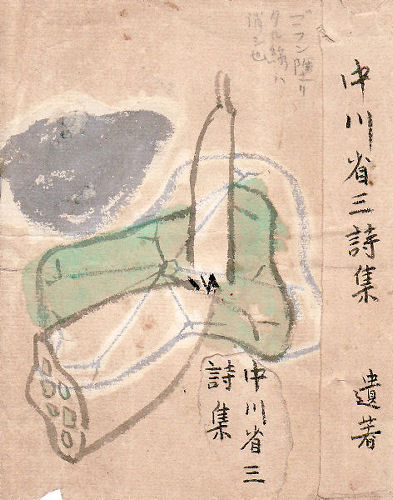 中川省三詩集　遺著
ゴフン塗リ
タル線ハ
消シ也
中川省三
詩集